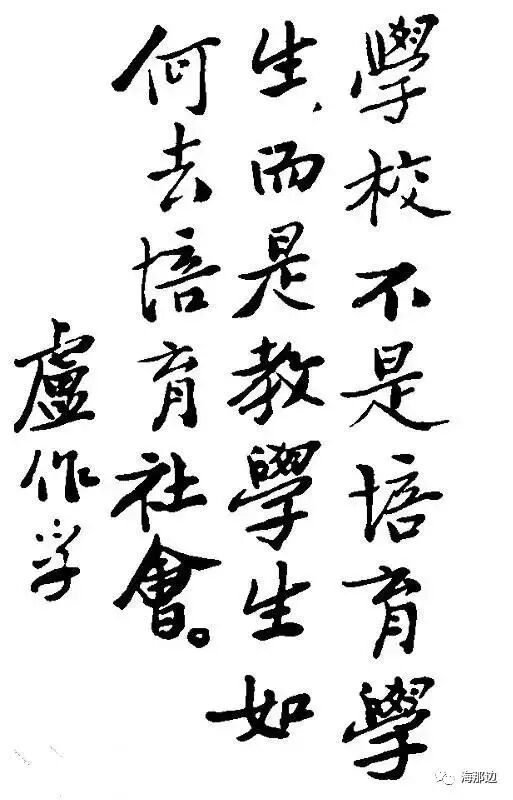 學校不是培育學
生、而是教學生如
何去培育社會。
盧作孚
海那边